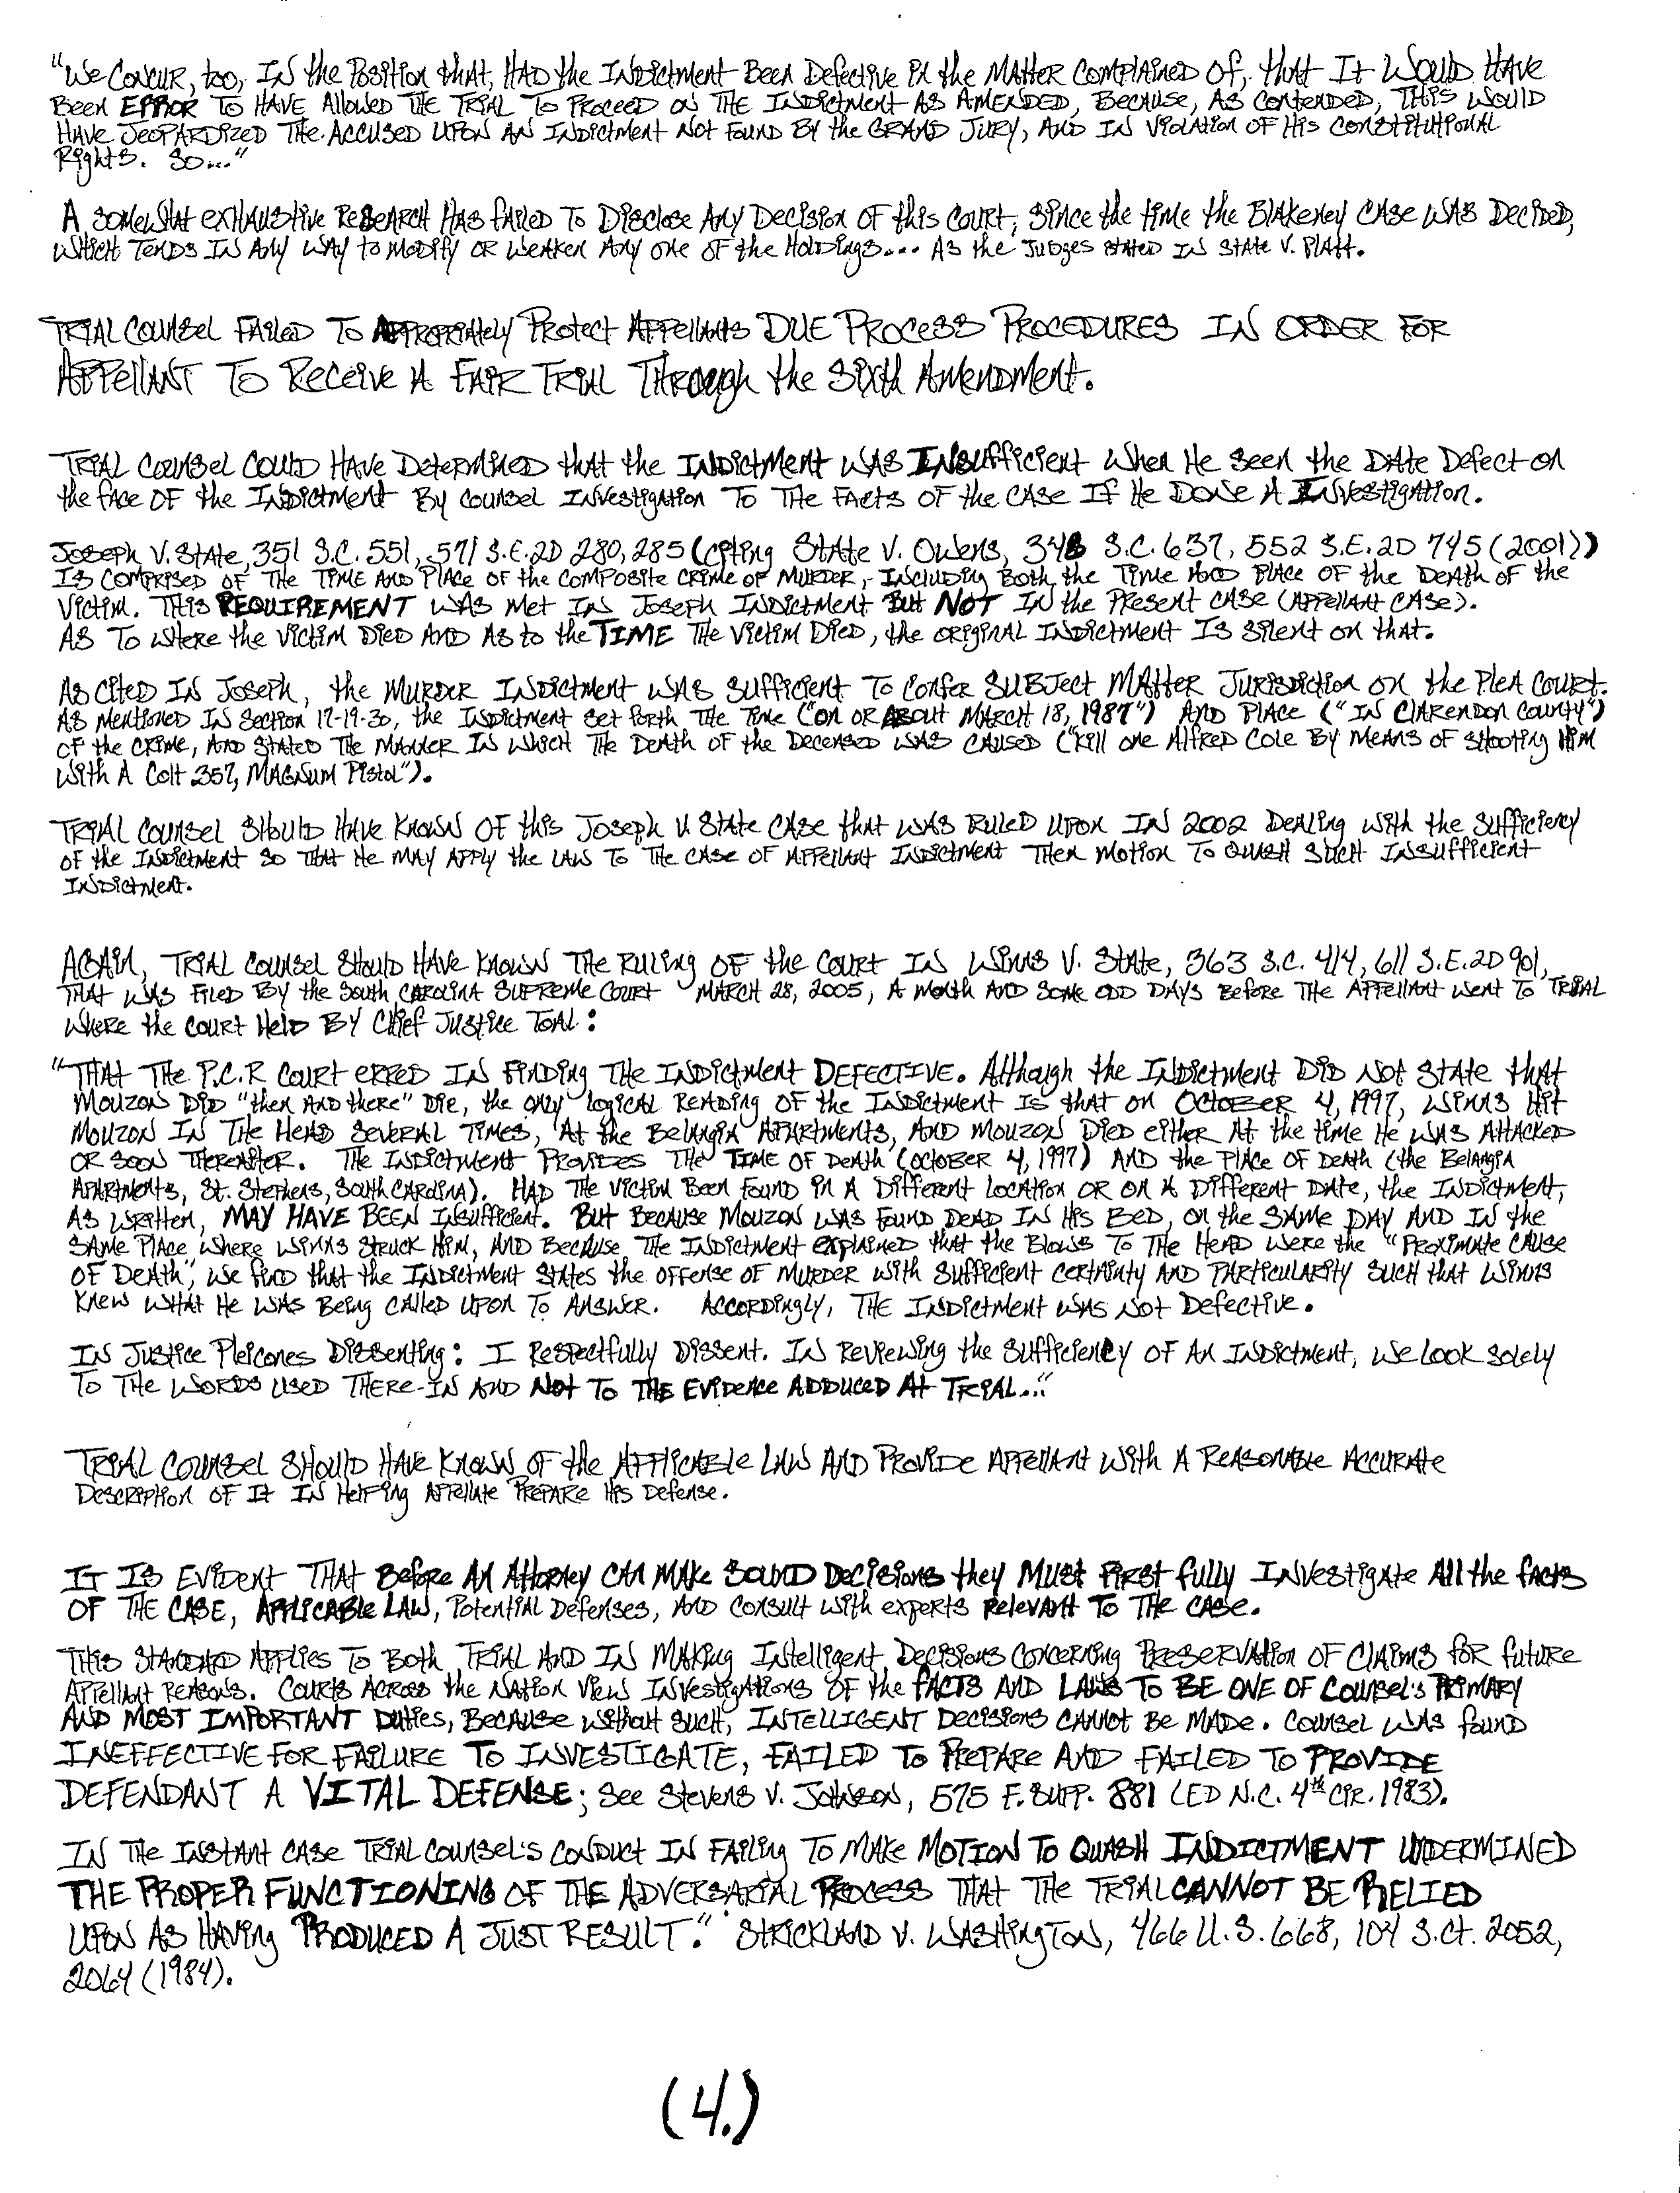 "We Concur, too, In the Position that, Had the Indictment Been Defective in the Matter Complained of, that It Would Have
Been ERROR To Have Allowed The Trial To Proceed on The Indictment As Amended, Because, As Contended, This Would
Have Jeopardized The Accused Upon An Indictment Not Found By the Grand Jury, And In Violation of His Constitutional
Rights. So..."
A Somewhat exhaustive Research Has failed To Disclose Any Decision Of this Court, Since the time the Blakeney Case Was Decided,
Which Tends In Any Way to Modify Or Weaken Any one of the Holdings... As the Judges stated In State v. Platt.
Trial Counsel Failed To Appropriately Protect Appellants Due Process Procedures In Order For
Appellant To Receive A Fair Trial Through the Sixth Amendment.
Trial Counsel Could Have Determined that the Indictment Was Insufficient When He Seen the Date Defect on
the face Of the Indictment By Counsel Investigation To The Facts Of the Case If He Done A Investigation.
Joseph V. State, 351 S.C. 551, 571 S.E.2D 280, 285 (citing State v. Owens, 346 S.C. 637, 552 S.E.2D 745 (2001))
Is Comprised Of The Time And Place Of the Composite Crime of Murder, Including Both the Time And Place Of the Death of the
Victim. This REQUIREMENT Was Met In Joseph Indictment But NOT In the Present Case (Appellant Case).
As To Where the Victim Died And As to the TIME The Victim Died, the original Indictment Is silent on that.
As Cited In Joseph, the Murder Indictment Was Sufficient To Confer Subject Matter Jurisdiction on the Plea Court.
As Mentioned In Section 17-19-30, the Indictment Set forth The Time ("On or About March 18, 1987") And Place ("In Clarendon County")
of the Crime, And Stated The Manner In Which The Death of the Deceased Was Caused ("Kill one Alfred Cole By Means of Shooting Him
With A Colt 357, Magnum Pistol").
Trial Counsel Should Have Known Of this Joseph v. State Case that Was Ruled Upon In 2002 Dealing With the Sufficiency
of the Indictment So That He May Apply the Law To The Case of Appellant Indictment Then Motion To Quash Such Insufficient
Indictment.
Again, Trial Counsel Should Have Known The Ruling Of the Court In Winns V. State, 363 S.C. 414, 611 S.E.2D 901,
That Was Filed By the South Carolina Supreme Court March 28, 2005, A Month And Some Odd Days Before The Appellant Went To Trial
Where the Court Held By Chief Justice Toal:
"That The P.C.R Court erred In Finding The Indictment Defective. Although the Indictment Did Not State that
Mouzon Did "then And there" Die, the only logical Reading Of the Indictment Is that on October 4, 1997, Winns Hit
Mouzon In The Head Several Times, At the Belangia Apartments, And Mouzon Died either At the time He Was Attacked
Or Soon Thereafter. The Indictment Provides The Time of Death (October 4, 1997) And the Place of Death (the Belangia
Apartments, St. Stephens, South Carolina). Had The Victim Been Found in A Different Location or on A Different Date, the Indictment,
As Written, May Have Been Insufficient. But Because Mouzon Was Found Dead In His Bed, on the Same Day And In the
Same Place Where Winns Struck Him, And Because The Indictment explained that the Blows To The Head Were the "Proximate Cause
Of Death", We find that the Indictment States the Offense of Murder With Sufficient Certainty And Particularity Such that Winns
Knew What He Was Being Called Upon To Answer. Accordingly, The Indictment Was Not Defective.
In Justice Pleicones Dissenting: I Respectfully Dissent. In Reviewing the Sufficiency Of An Indictment, We Look Solely
To The Words Used There-In And Not To The Evidence Adduced At Trial..."
Trial Counsel Should Have Known Of the Applicable Law And Provide Appellant With A Reasonable Accurate
Description Of It In Helping Appellate Prepare His Defense.
It Is Evident That Before An Attorney Can Make Sound Decisions they Must First fully Investigate All the facts
Of The Case, Applicable Law, Potential Defenses, And Consult With experts Relevant To The Case.
This Standard Applies To Both Trial And In Making Intelligent Decisions Concerning Preservation Of Claims for future
Appellant Reasons. Courts Across the Nation View Investigations Of the Facts And Laws To Be One Of Counsel's Primary
And Most Important Duties, Because Without Such, Intelligent Decisions Cannot Be Made. Counsel Was Found
Ineffective For Failure To Investigate, Failed To Prepare And Failed To Provide
Defendant A VITAL Defense; See Stevens v. Johnson, 575 F. Supp. 881 (ED N.C. 4th Cir. 1983).
In The Instant Case Trial Counsel's Conduct In Failing To Make Motion To Quash Indictment Undermined
The Proper Functioning Of The Adversarial Process That The Trial Cannot Be Relied
Upon As Having Produced A Just Result." Strickland v. Washington, 466 U.S. 668, 104 S.Ct. 2052,
2064 (1984).
(4.)